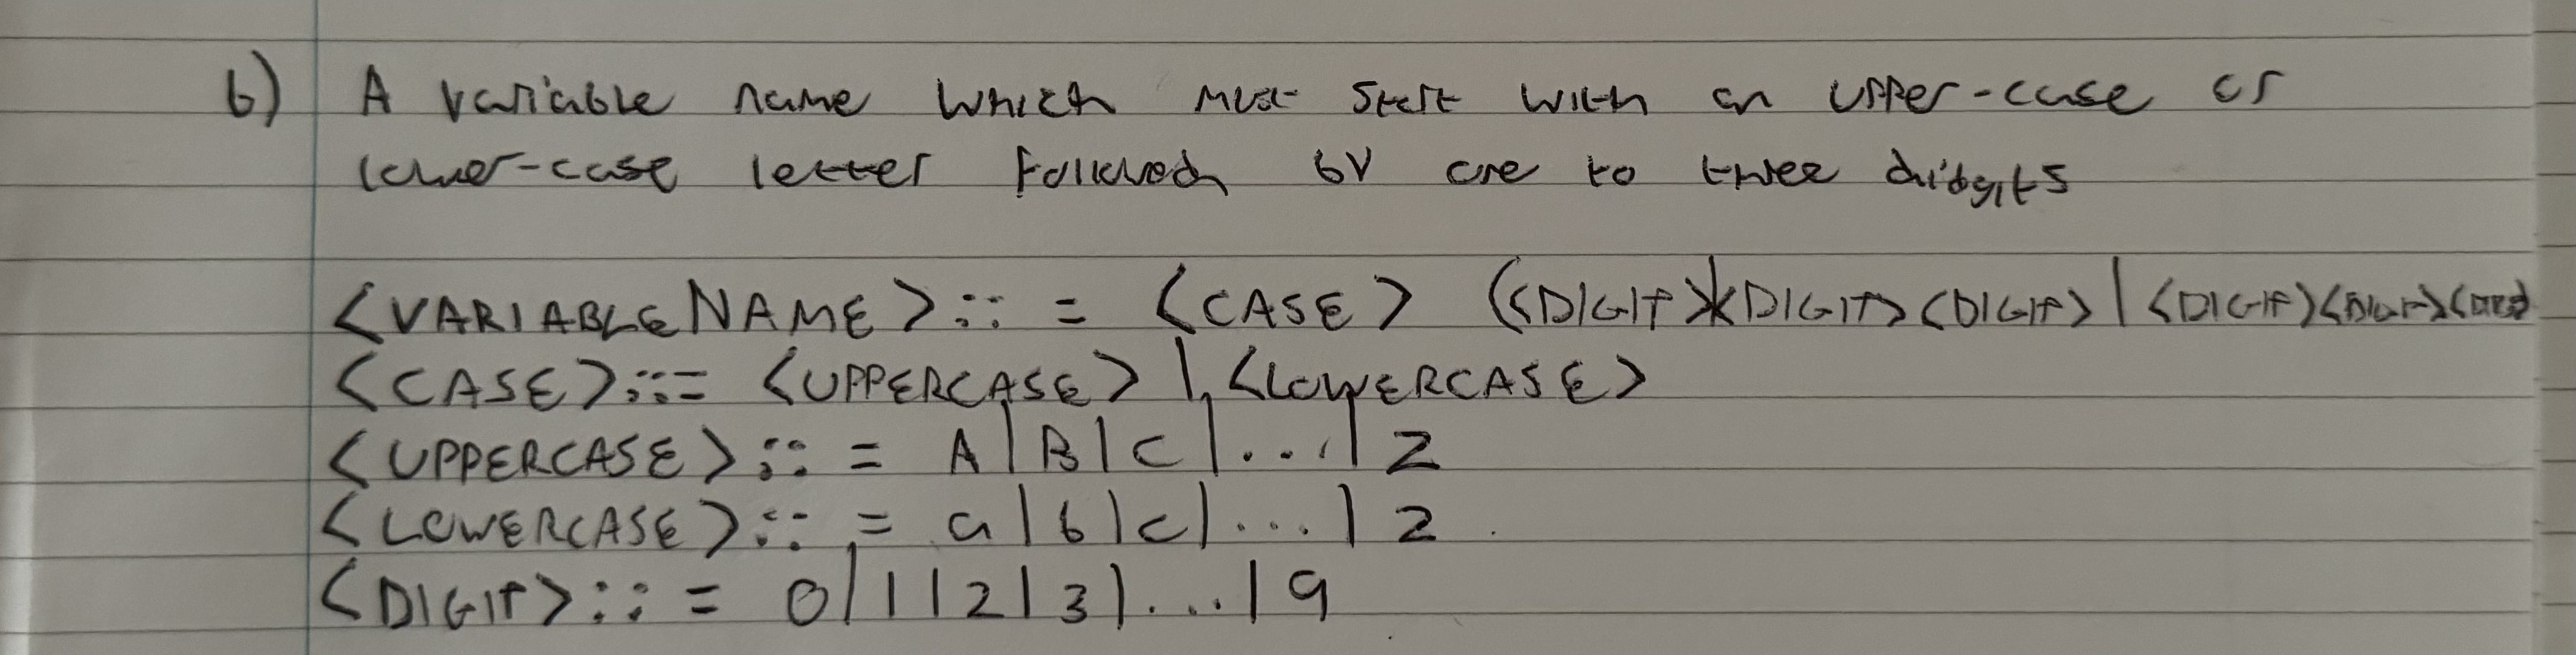 b) A variable name which must start with an upper-case or
lower-case letter followed by one to three digits
<VARIABLENAME>::= <CASE> (<DIGIT>|<DIGIT><DIGIT>|<DIGIT><DIGIT><DIGIT>)
<CASE>::= <UPPERCASE> | <LOWERCASE>
<UPPERCASE>::= A|B|C|...|Z
<LOWERCASE>::= a|b|c|...|z
<DIGIT>::= 0|1|2|3|...|9